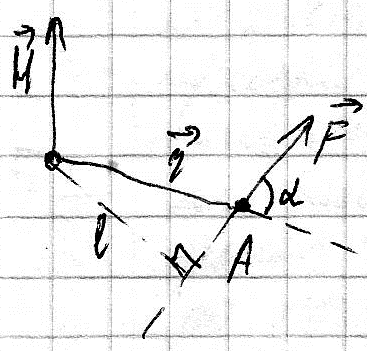 M⃗
r⃗
F⃗
α
l
A